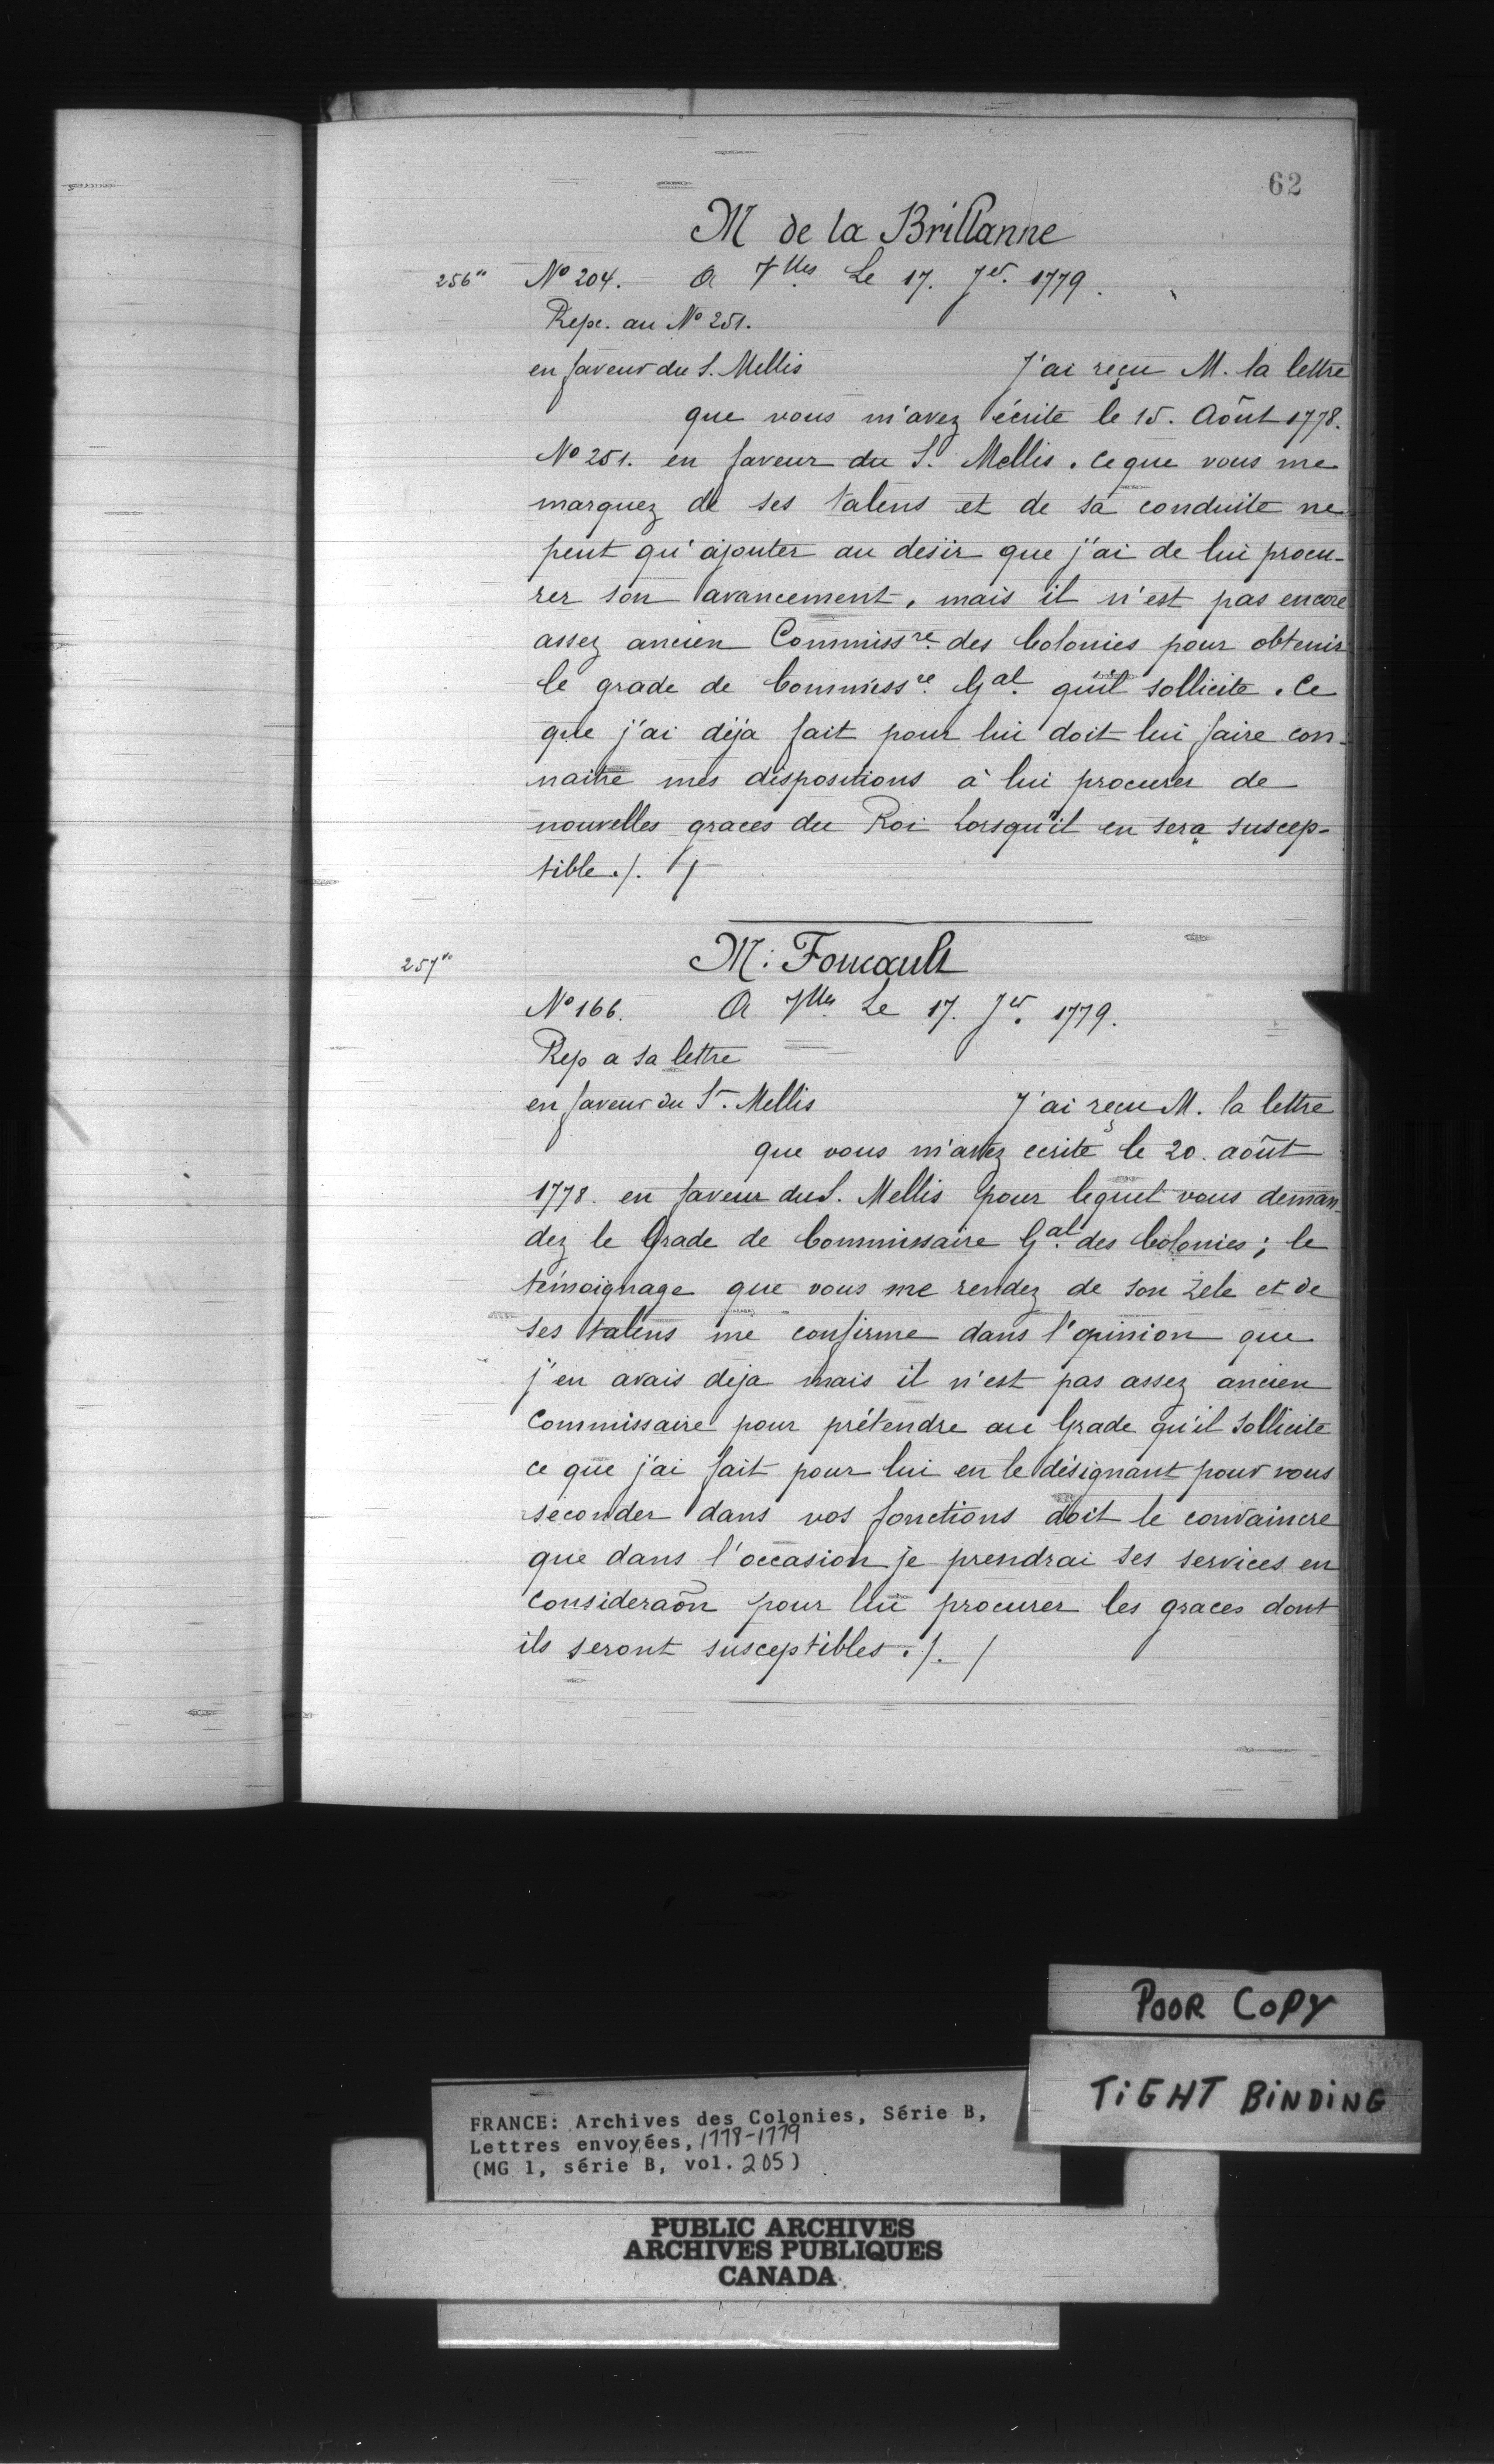 62
M de la Brillanne
256 vo No 204. A Vlles Le 17. Jer. 1779.
Repe. au No 251.
en faveur du S. Mellis J'ai reçu M. la lettre
que vous m'avez écrite le 15. Août 1778.
No 251. en faveur du S. Mellis. Ce que vous me
marquez de ses talens et de sa conduite ne
peut qu'ajouter au desir que j'ai de lui procu-
rer son avancement, mais il n'est pas encore
assez ancien Commissre. des Colonies pour obtenir
le grade de Commissre. Gal. qu'il sollicite. Ce
que j'ai déja fait pour lui doit lui faire con-
naitre mes dispositions à lui procurer de
nouvelles graces du Roi Lorsqu'il en sera suscep-
tible./. /
M: Foucault
257 vo
No 166. A Vlles Le 17. Jer. 1779.
Rep a sa lettre
en faveur du Sr. Mellis J'ai reçu M. la lettre
que vous m'avez ecrite le 20. août
1778. en faveur du S. Mellis pour lequel vous deman-
dez le Grade de Commissaire Gal. des Colonies; le
témoignage que vous me rendez de son Zele et de
ses talens me confirme dans l'opinion que
j'en avais deja mais il n'est pas assez ancien
Commissaire pour prétendre au Grade qu'il Sollicite
ce que j'ai fait pour lui en le désignant pour vous
seconder dans vos fonctions doit le convaincre
que dans l'occasion je prendrai ses services en
consideraõn pour lui procurer les graces dont
ils seront susceptibles./. /
POOR COPY
TIGHT BINDING
FRANCE: Archives des Colonies, Série B,
Lettres envoyées, 1778-1779
(MG 1, série B, vol. 205)
PUBLIC ARCHIVES
ARCHIVES PUBLIQUES
CANADA